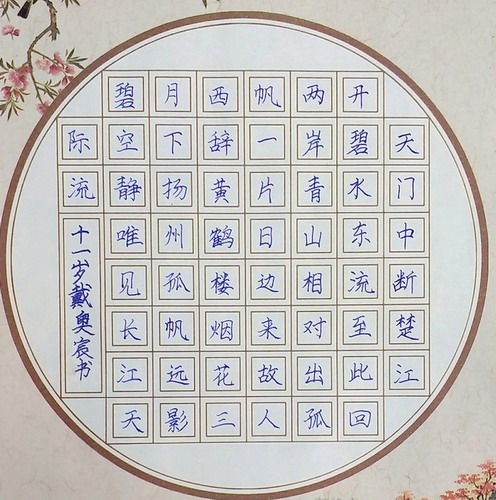 天门中断楚江
开碧水东流至此回
两岸青山相对出孤
帆一片日边来故人
西辞黄鹤楼烟花三
月下扬州孤帆远影
碧空静唯见长江天
际流
十一岁戴奥宸书